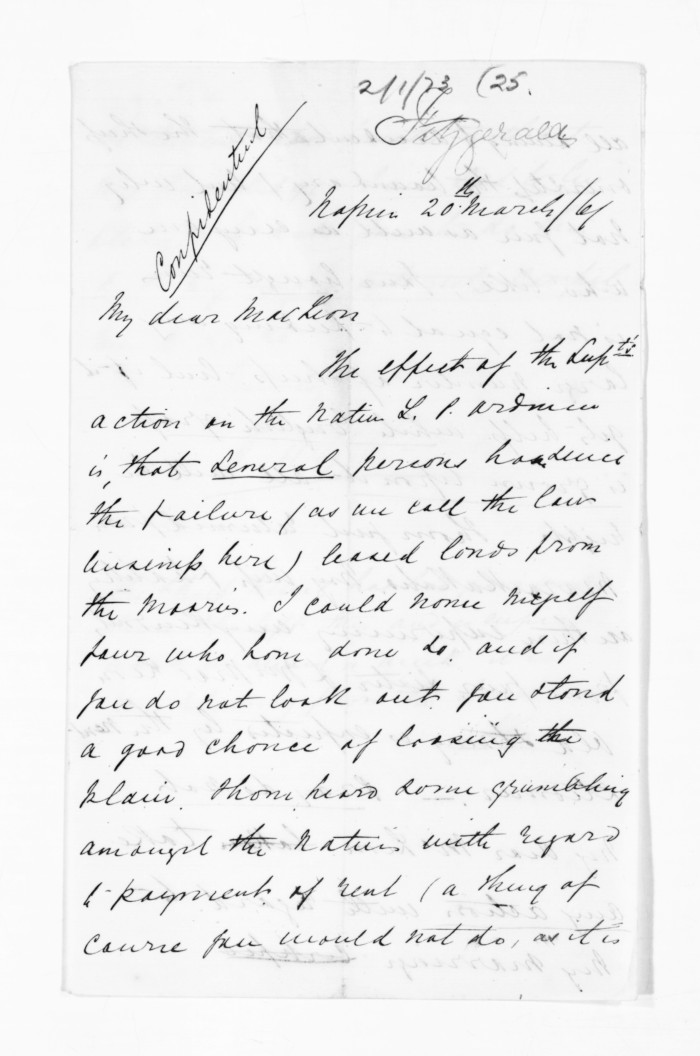 2/1/73 (25.
Fitzgerald
Confidential
Napier 20th March /61
My dear MacLean
The effect of the Supts
action on the Native L. P. ordinance
is, that several persons have since
the failure (as we call the law
business here) leased lands from
the Maoris. I could name myself
four who have done so, and if
you do not look out you stand
a good chance of loosing the
plain. I have heard some grumbling
amongst the Natives with regard
to payment of rent (a thing of
course you would not do, as it is